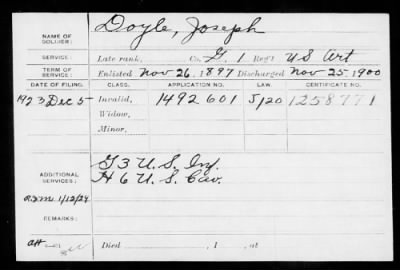 Doyle, Joseph
NAME OF SOLDIER:
SERVICE: Late rank, Co. G, 1 Reg't US Art
TERM OF SERVICE: Enlisted Nov 26, 1897 Discharged Nov 25, 1900
DATE OF FILING. CLASS. APPLICATION NO. LAW. CERTIFICATE NO.
1923 Dec 5 Invalid, 1492601 J120 1258771
Widow,
Minor,
ADDITIONAL SERVICES: G 3 U.S. Inf.
H 6 U.S. Cav.
1/12/24
REMARKS:
Died , 1 , at